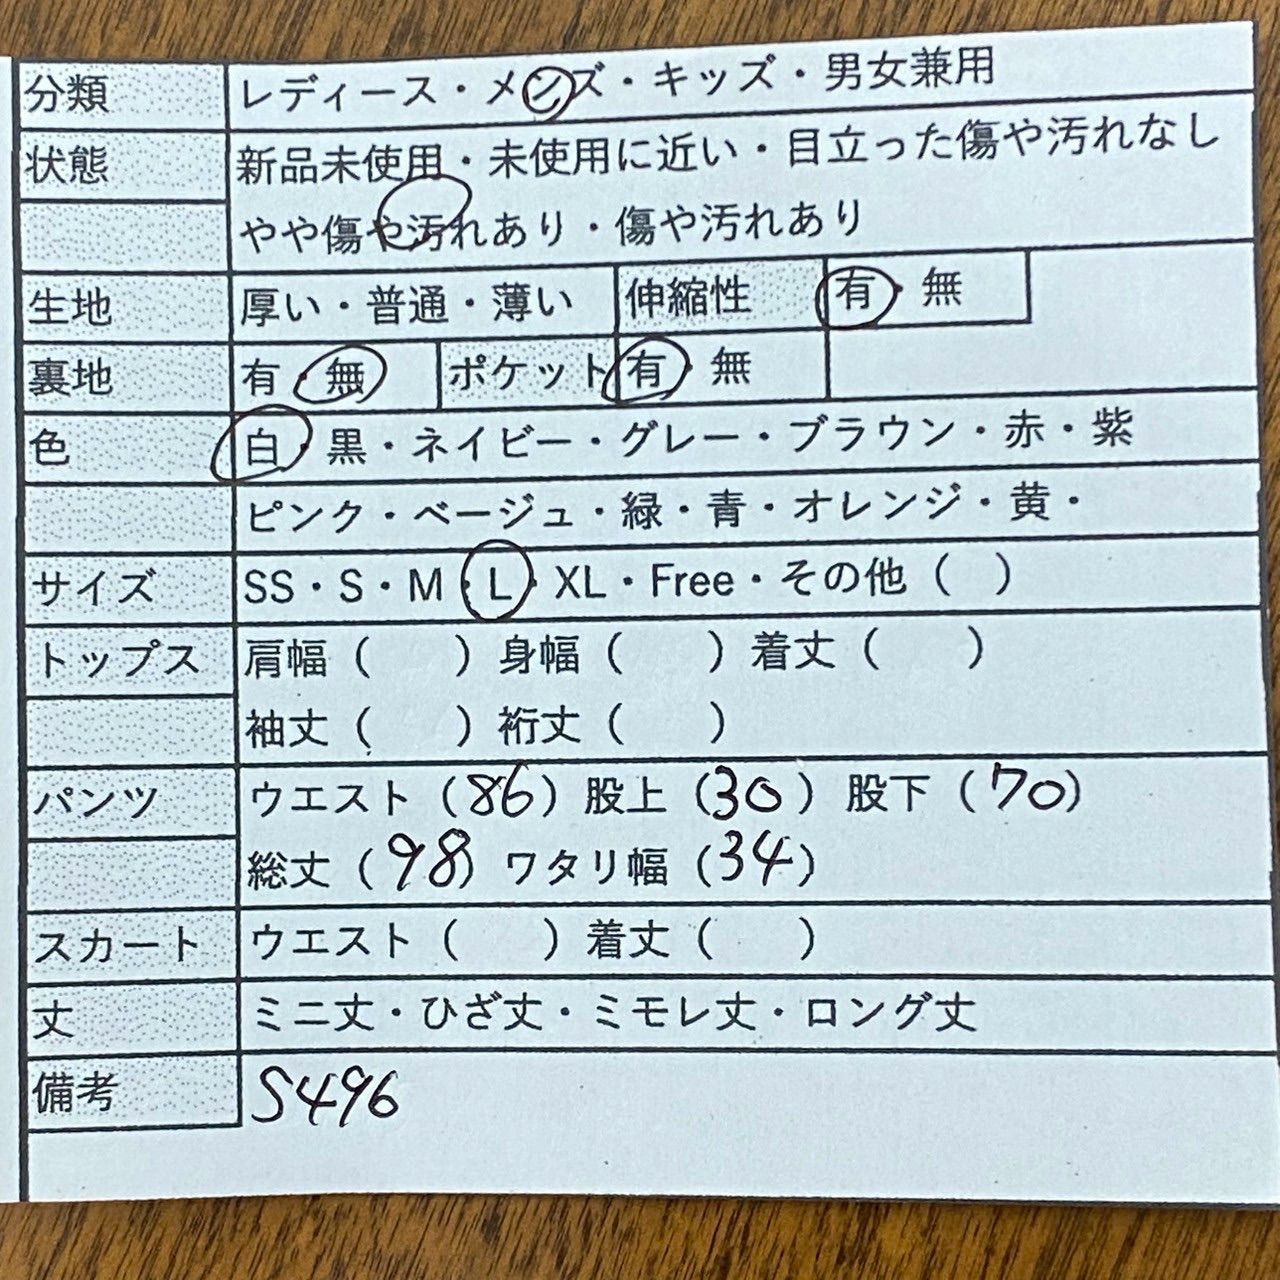 分類 レディース・メンズ・キッズ・男女兼用
状態 新品未使用・未使用に近い・目立った傷や汚れなし
やや傷や汚れあり・傷や汚れあり
生地 厚い・普通・薄い 伸縮性 有・無
裏地 有・無 ポケット 有・無
色 白・黒・ネイビー・グレー・ブラウン・赤・紫
ピンク・ベージュ・緑・青・オレンジ・黄・
サイズ SS・S・M・L・XL・Free・その他（ ）
トップス 肩幅（ ）身幅（ ）着丈（ ）
袖丈（ ）裄丈（ ）
パンツ ウエスト（86）股上（30）股下（70）
総丈（98）ワタリ幅（34）
スカート ウエスト（ ）着丈（ ）
丈 ミニ丈・ひざ丈・ミモレ丈・ロング丈
備考 S496